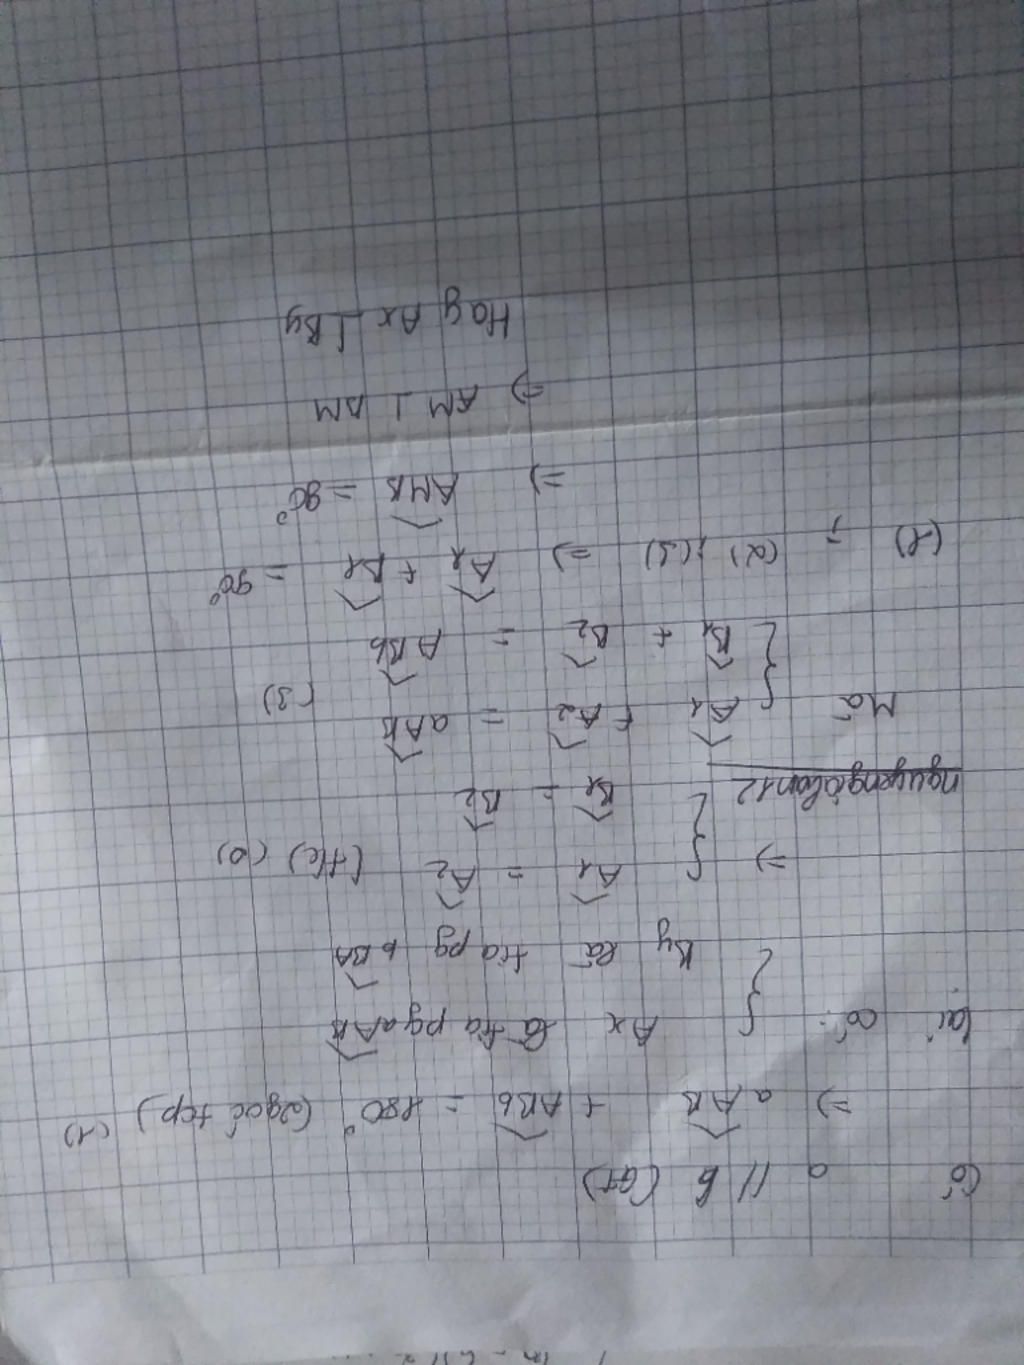 Có a // b (GT)
=> aAB + ABb = 180° (2góc tcp) (1)
Lại có: { Ax là tia pg aAB
By là tia pg bBA
=> { A1 = A2 (t/c) (2)
B1 = B2
nguyengiaoan12
Mà { A1 + A2 = aAB (3)
B1 + B2 = ABb
(1), (2), (3) => A1 + B1 = 90°
=> AMB = 90°
=> AM ⊥ BM
Hay Ax ⊥ By